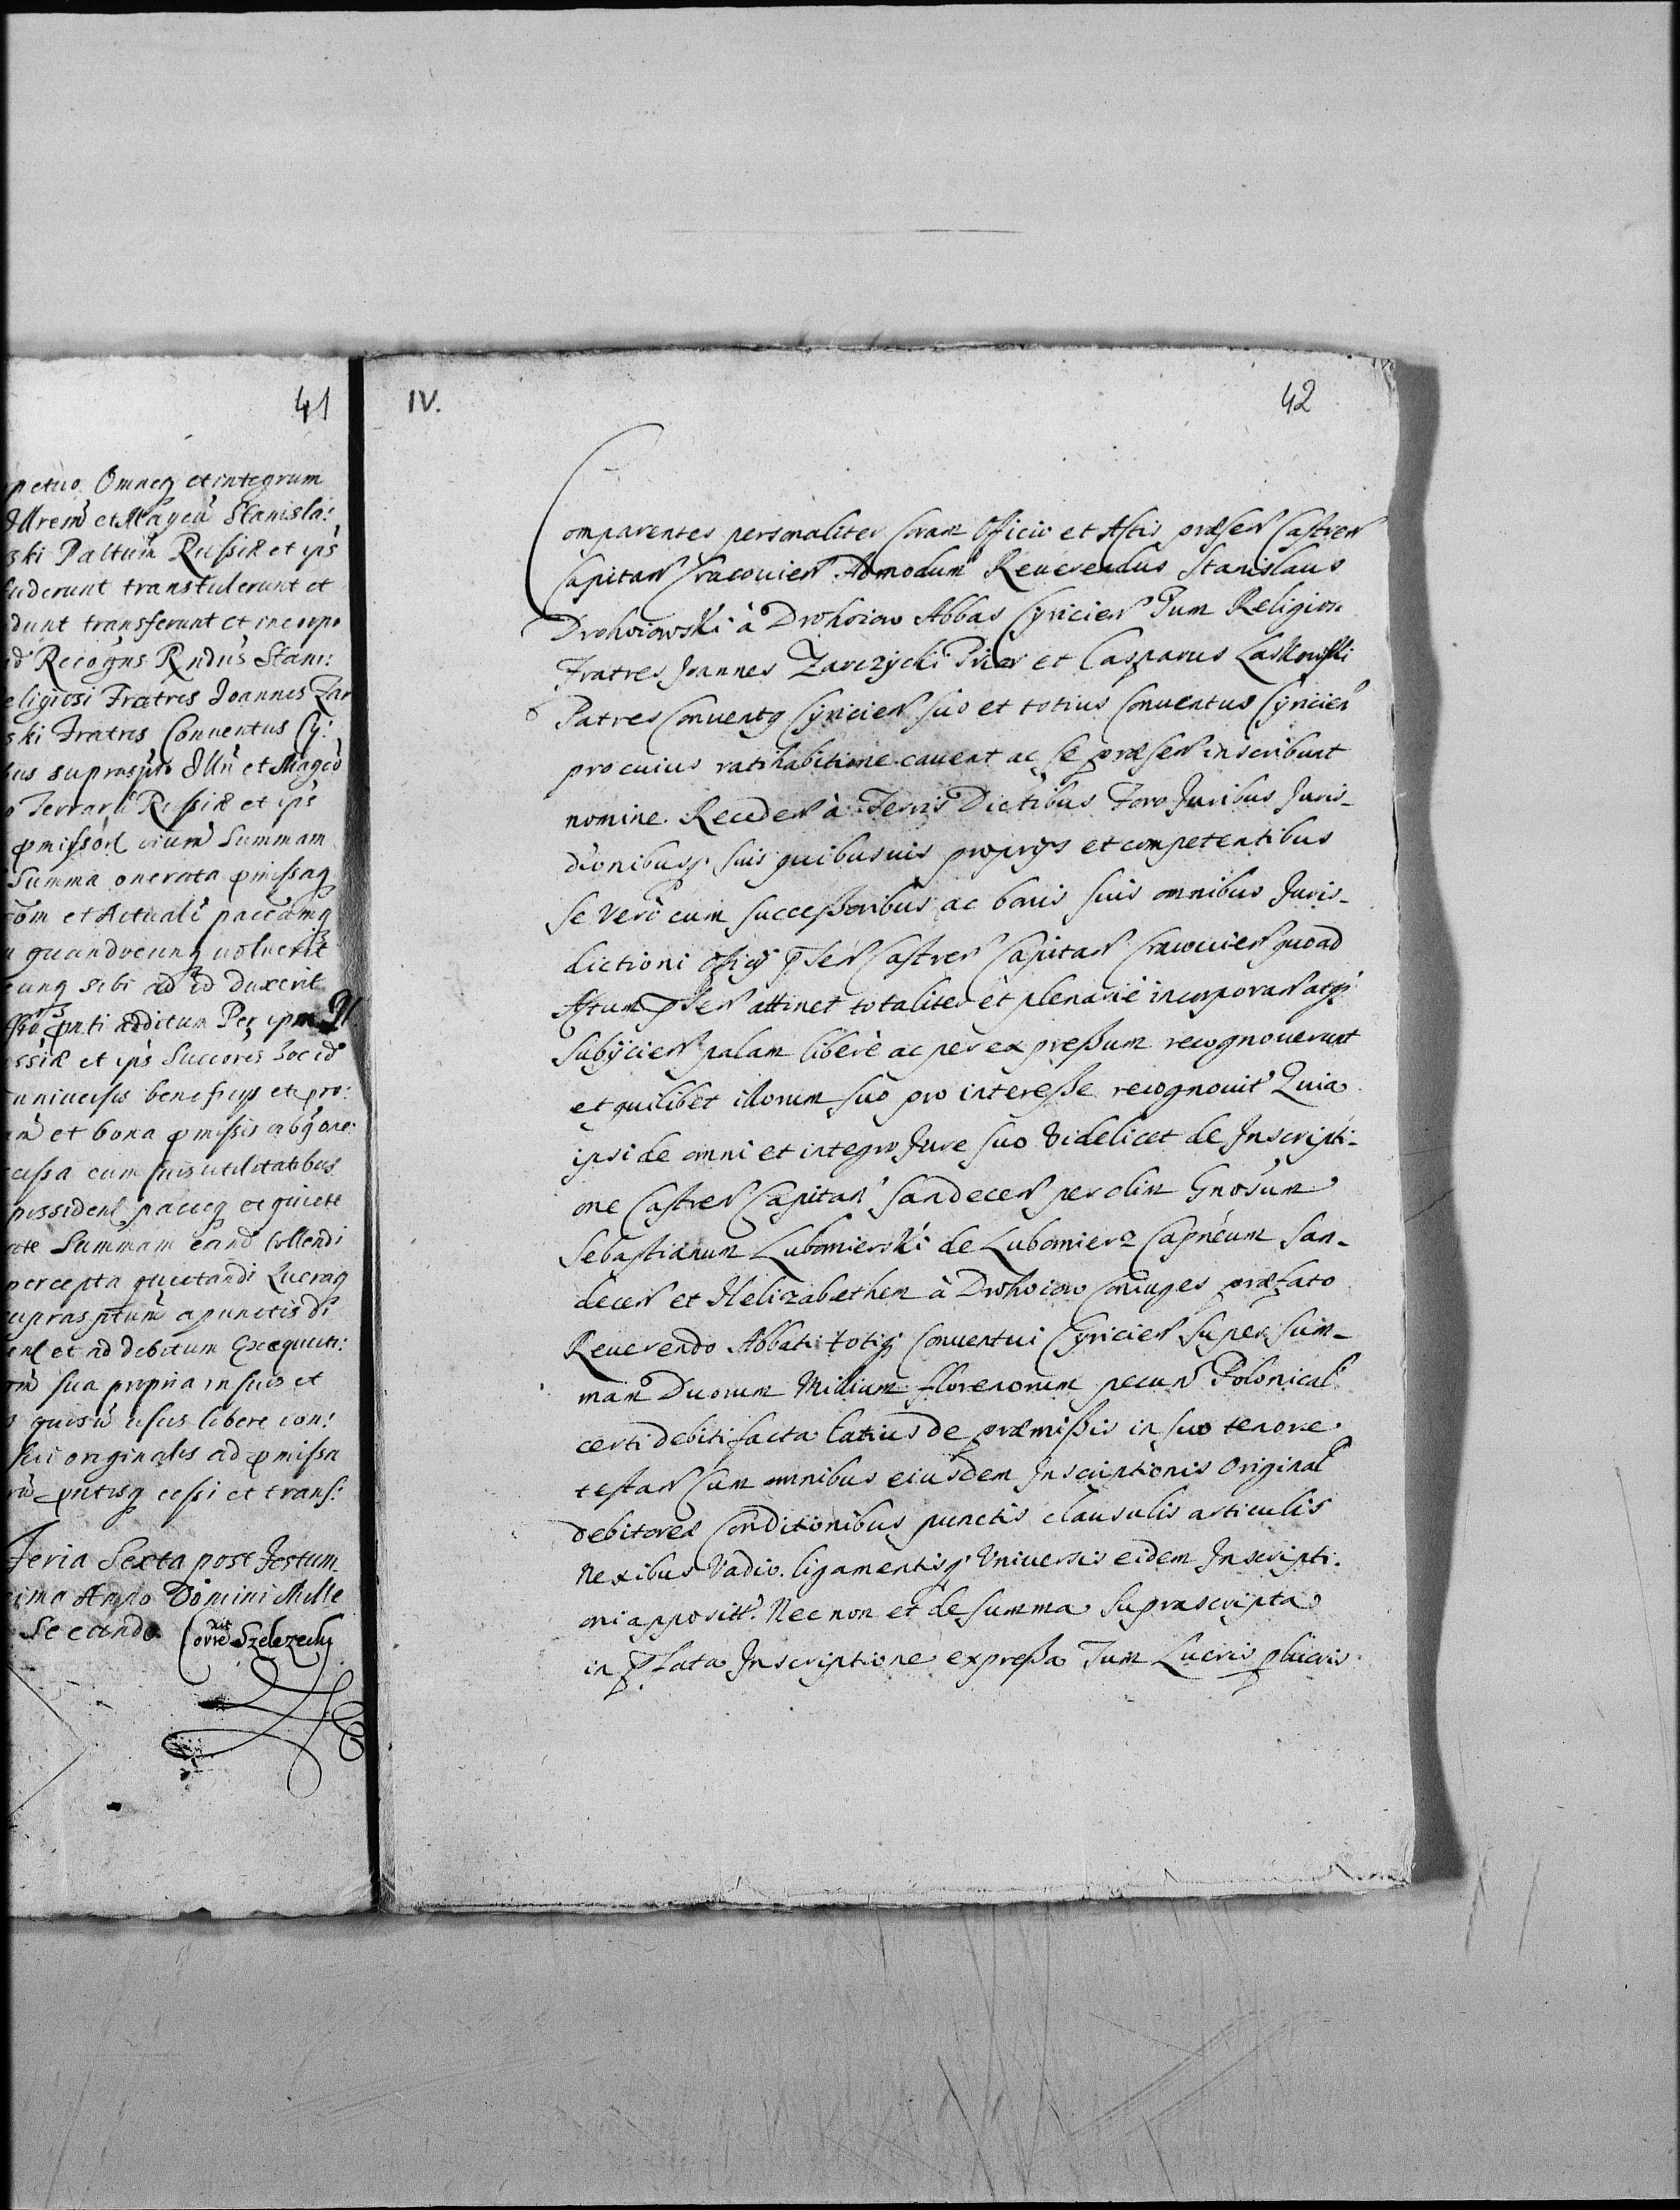 41
petuo Omneq et integrum
Illrem et Magcu Stanisla:
ski Paltum Russiæ et ips
fuderunt transtulerunt et
dunt transferunt et incorpo
Recogns Rndus Stani:
eligiosi Fratres Joannes Zar
ski Fratres Conuentus Cy:
bus suprasptto Illri et Magco
Terraru Russiæ et ips
summam
Summa onerata pmissaq
et Actuali
quandocunq uoluerit
cunq sibi ad id duxerit
pnti additum Per ipm
ssiæ et ips Succores Joc id
uniuersis beneficijs et pro:
et bona pmissis
cessa cum suis utilitatibus
possidenl paceq et quiete
Summam eand tollendi
percepta quietandi Lucraq
suprasptum a punctis di
enl et ad debitum Exequuti:
sua propria in suis et
usus libere con:
sui originales ad pmissa
pntisq cessi et transf:
Feria Sexta post Festum
Anno Domini Mille
Secundo Corre Szelezecky
IV.
42
Comparentes personaliter Coram Officio et Actis præsen Castren
Capitan Cracouien Admodum Reuerendus Stanislaus
Drohoiowski à Drohoiow Abbas Cyricien Tum Religiosi
Fratres Joannes Zarczycki Prior et Casparus Laskowski
Patres Conuentq Cyricien suo et totius Conuentus Cyricien
pro cuius ratihabitione cauent ac se præsen inscribunt
nomine. Receden à Terris Dictibus Foro Juribus Juris-
dionibusq suis quibusuis proprijs et competentibus
se verò cum successoribus ac bonis suis omnibus Juris-
dictioni officij psen Castren Capitan Cracouien quoad
Actum psen attinet totaliter et plenarie incorporan atq
subijcien palam liberè ac per expressum recognouerunt
et quilibet illorum suo pro interesse recognouit Quia
ipsi de omni et integro Jure suo Videlicet de Inscripti-
one Castren Capitan Sandecen per olim Gnosum
Sebastianum Lubomierski de Lubomierz Capneum San-
decen et Helizabethem à Drohoiow Coniuges præfato
Reuerendo Abbati totiq Conuentui Cyricien super sum-
mam Duorum Millium florenorum pecun Polonical
certi debiti facta latius de præmissis in suo tenore
testan Cum omnibus eiusdem Inscriptionis Original
debitorea Conditionibus punctis clausulis articulis
Nexibus Vadio. ligamentisq Vniuersis eidem Inscripti-
oni apposit. Nec non et de summa suprascripta
in pfata Inscriptione expressa Tum Lucris plucris